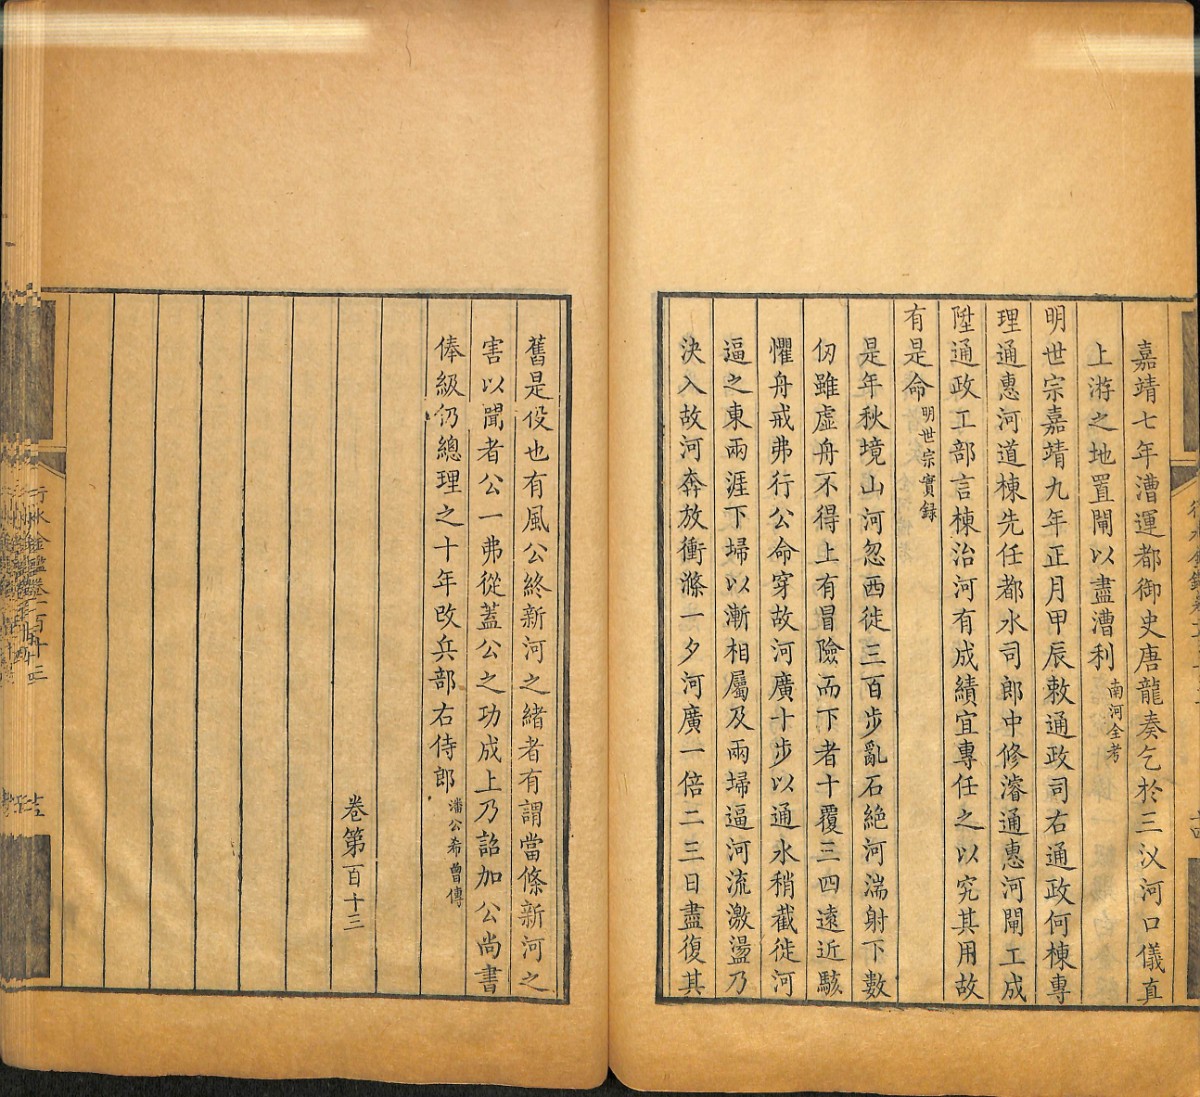 嘉靖七年漕運都御史唐龍奏乞於三汊河口儀真
上游之地置閘以盡漕利南河全考
明世宗嘉靖九年正月甲辰敕通政司右通政何棟專
理通惠河道棟先任都水司郎中修濬通惠河閘工成
陞通政工部言棟治河有成績宜專任之以究其用故
有是命明世宗實録
是年秋境山河忽西徙三百步亂石絶河湍射下數
仞雖虛舟不得上有冒險而下者十覆三四遠近駭
懼舟戒弗行公命穿故河廣十步以通水稍截徙河
逼之東兩涯下埽以漸相屬及兩埽逼河流激盪乃
決入故河奔放衝滌一夕河廣一倍二三日盡復其
舊是役也有風公終新河之緒者有謂當條新河之
害以聞者公一弗從蓋公之功成上乃詔加公尚書
俸級仍總理之十年改兵部右侍郎潘公希曾傳
卷第百十三
行水金鑑卷一百十三